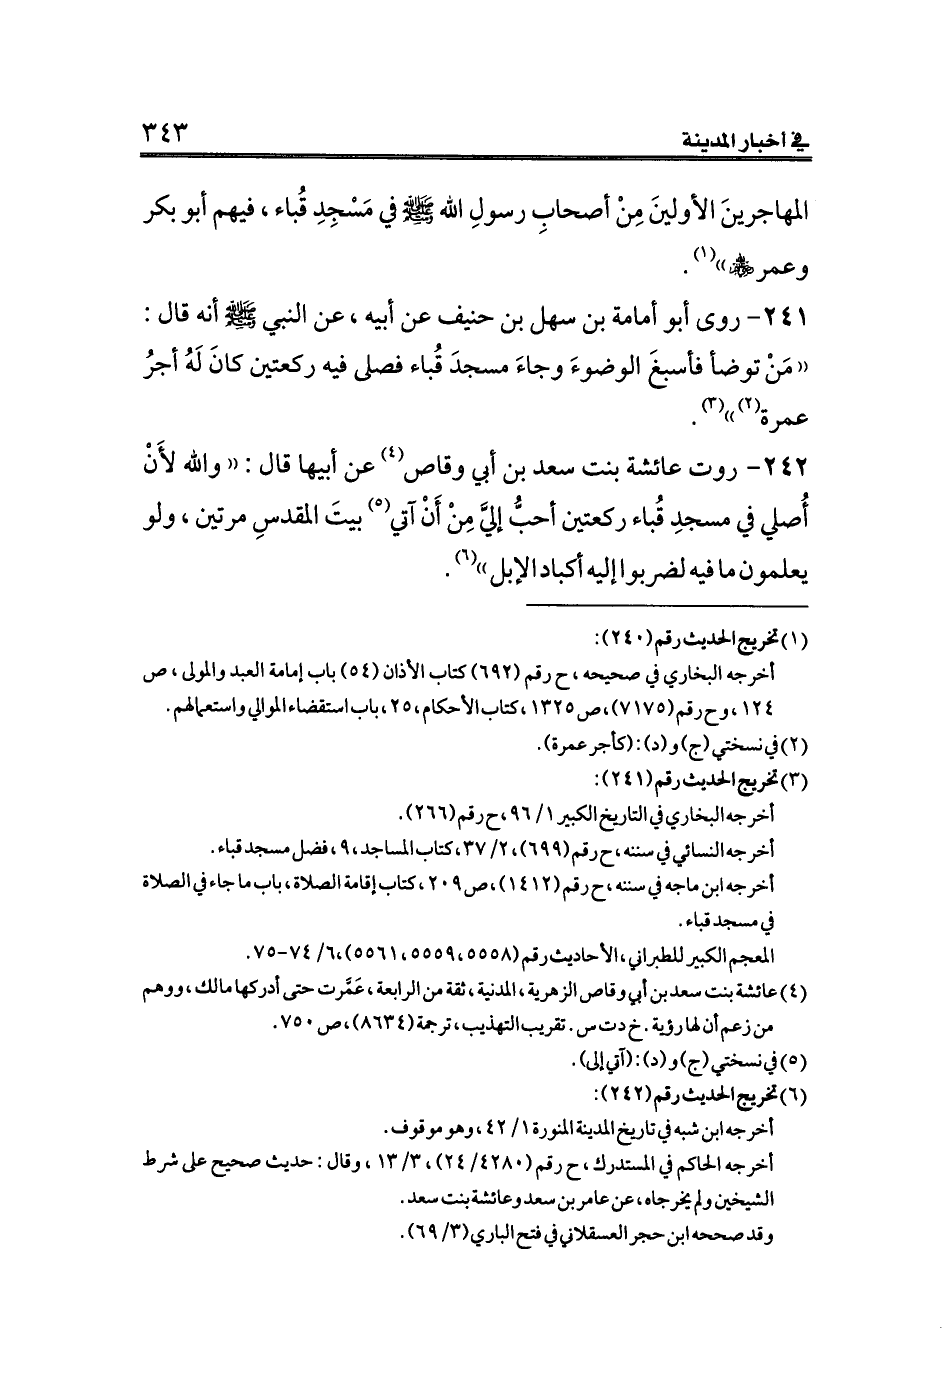 في أخبار المدينة ٣٤٣
المهاجرينَ الأولينَ مِنْ أصحابِ رسولِ الله ﷺ في مَسْجِدِ قُباء ، فيهم أبو بكر
وعمر ﷻ»(١) .
٢٤١- روى أبو أمامة بن سهل بن حنيف عن أبيه ، عن النبي ﷺ أنه قال :
«مَنْ توضأ فأسبغَ الوضوءَ وجاءَ مسجدَ قُباء فصلى فيه ركعتين كانَ لَهُ أجرُ
عمرة(٢)»(٣) .
٢٤٢- روت عائشة بنت سعد بن أبي وقاص(٤) عن أبيها قال : «والله لأَنْ
أُصلي في مسجدِ قُباء ركعتين أحبُّ إليَّ مِنْ أَنْ آتي(٥) بيتَ المقدسِ مرتين ، ولو
يعلمون ما فيه لضربوا إليه أكباد الإبل»(٦) .
(١) تخريج الحديث رقم (٢٤٠):
أخرجه البخاري في صحيحه ، ح رقم (٦٩٢) كتاب الأذان (٥٤) باب إمامة العبد والمولى ، ص
١٢٤ ، وح رقم (٧١٧٥)، ص ١٣٢٥ ، كتاب الأحكام ، ٢٥ ، باب استقضاء الموالي واستعمالهم .
(٢) في نسختي (ج) و (د) : (كأجر عمرة) .
(٣) تخريج الحديث رقم (٢٤١):
أخرجه البخاري في التاريخ الكبير ١/ ٩٦ ، ح رقم (٢٦٦) .
أخرجه النسائي في سننه ، ح رقم (٦٩٩)، ٢/ ٣٧، كتاب المساجد ، ٩ ، فضل مسجد قباء .
أخرجه ابن ماجه في سننه ، ح رقم (١٤١٢)، ص ٢٠٩ ، كتاب إقامة الصلاة ، باب ما جاء في الصلاة
في مسجد قباء .
المعجم الكبير للطبراني ، الأحاديث رقم (٥٥٥٨ ، ٥٥٥٩ ، ٥٥٦١)، ٦/ ٧٤-٧٥ .
(٤) عائشة بنت سعد بن أبي وقاص الزهرية ، المدنية ، ثقة من الرابعة ، عَمَّرت حتى أدركها مالك ، ووهم
من زعم أن لها رؤية . خ د ت س . تقريب التهذيب ، ترجمة (٨٦٣٤)، ص ٧٥٠ .
(٥) في نسختي (ج) و (د) : (آتي إلى) .
(٦) تخريج الحديث رقم (٢٤٢):
أخرجه ابن شبه في تاريخ المدينة المنورة ١/ ٤٢ ، وهو موقوف .
أخرجه الحاكم في المستدرك ، ح رقم (٤٢٨٠/ ٢٤)، ٣/ ١٣ ، وقال : حديث صحيح على شرط
الشيخين ولم يخرجاه ، عن عامر بن سعد وعائشة بنت سعد .
وقد صححه ابن حجر العسقلاني في فتح الباري (٣/ ٦٩) .